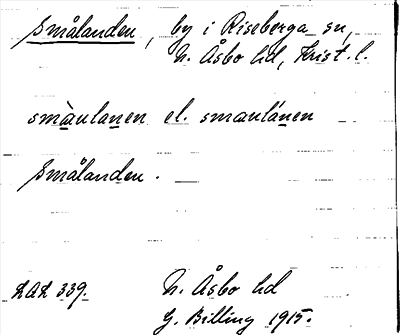 Smålanden, by i Riseberga sn,
N. Åsbo hd, Krist. l.
smàulanen el. smaulánen
Smålanden.
LAL 339. N. Åsbo hd
G. Billing 1915.